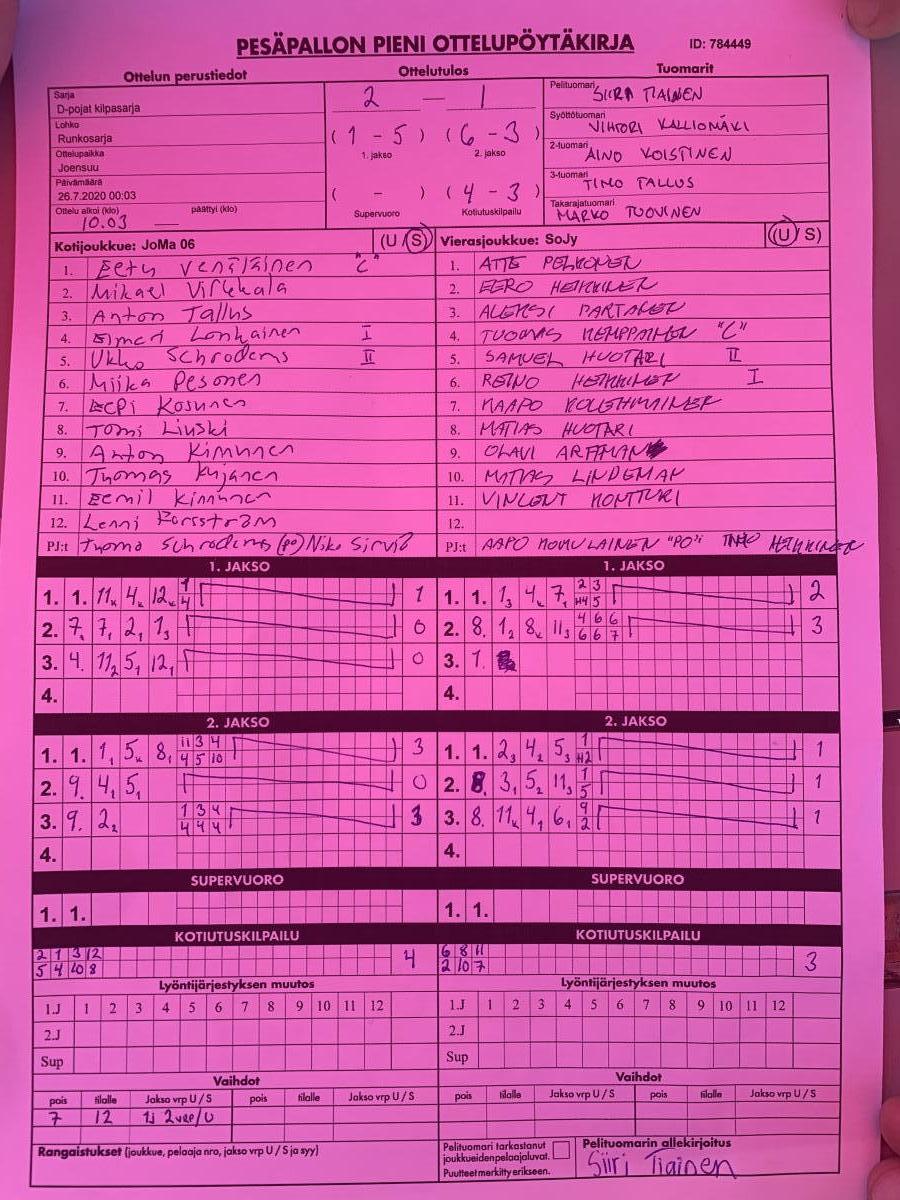 PESÄPALLON PIENI OTTELUPÖYTÄKIRJA ID: 784449
Ottelun perustiedot Ottelutulos Tuomarit
Sarja
D-pojat kilpasarja
Lohko
Runkosarja
Ottelupaikka
Joensuu
Päivämäärä
26.7.2020 00:03
Ottelu alkoi (klo) päättyi (klo)
10.03 —
2 — 1
(1 - 5) (6 - 3)
1. jakso 2. jakso
( - ) (4 - 3)
Supervuoro Kotiutuskilpailu
Pelituomari SIIRI TIAINEN
Syöttötuomari VIHTORI KALLIOMÄKI
2-tuomari AINO VOISTINEN
3-tuomari TIMO TALLUS
Takarajatuomari MARKO TUOVINEN
Kotijoukkue: JoMa 06 (U S)
1. Eetu Venäläinen "C"
2. Mikael Virkkala
3. Anton Tallus
4. Elmeri Lonkainen I
5. Ukko Schroderus II
6. Miika Pesonen
7. Eepi Kosunen
8. Tomi Linski
9. Anton Kinnunen
10. Tuomas Kujanen
11. Eemil Kinnunen
12. Lenni Forsström
PJ:t Tuomo Schroderus (po) Niko Sirviö
Vierasjoukkue: SoJy (U/ S)
1. ATTE PELKONEN
2. EERO HEIKKINEN
3. ALEKSI PARTANEN
4. TUOMAS KEMPPAINEN "C"
5. SAMUEL HUOTARI II
6. REINO HEIKKINEN I
7. KAAPO KOLEHMAINEN
8. MATIAS HUOTARI
9. OLAVI ARFFMAN
10. MATIAS LINDEMAN
11. VINCENT KONTTURI
12.
PJ:t AAPO MOMULAINEN "PO" TIMO HEIKKINEN
1. JAKSO
1. 1. 11x 4x 12x 1 1
4
2. 7. 7, 2, 1₃ 0
3. 4. 11₂ 5, 12, 0
4.
1. JAKSO
1. 1. 1₃ 4x 7, 2 3 2
H4 5
2. 8. 1₂ 8x 11₃ 4 6 6 3
6 6 7
3. 1.
4.
2. JAKSO
1. 1. 1, 5x 8, 11 3 4 3
4 5 10
2. 9. 4, 5, 0
3. 9. 2₂ 1 3 4 3
4 4 4
4.
2. JAKSO
1. 1. 2₃ 4₂ 5₃ 1 1
H2
2. 8. 3, 5₂ 11₃ 1 1
5
3. 8. 11x 4, 6, 9 1
2
4.
SUPERVUORO
1. 1.
SUPERVUORO
1. 1.
KOTIUTUSKILPAILU
2 1 3 12 4
5 4 10 8
KOTIUTUSKILPAILU
6 8 11 3
2 10 7
Lyöntijärjestyksen muutos
1.J 1 2 3 4 5 6 7 8 9 10 11 12
2.J
Sup
Lyöntijärjestyksen muutos
1.J 1 2 3 4 5 6 7 8 9 10 11 12
2.J
Sup
Vaihdot
pois tilalle Jakso vrp U / S pois tilalle Jakso vrp U / S
7 12 1j 2vrp/U
Vaihdot
pois tilalle Jakso vrp U / S pois tilalle Jakso vrp U / S
Rangaistukset (joukkue, pelaaja nro, jakso vrp U / S ja syy)
Pelituomari tarkastanut
joukkueidenpelaajaluvat.
Puutteet merkitty erikseen.
Pelituomarin allekirjoitus
Siiri Tiainen